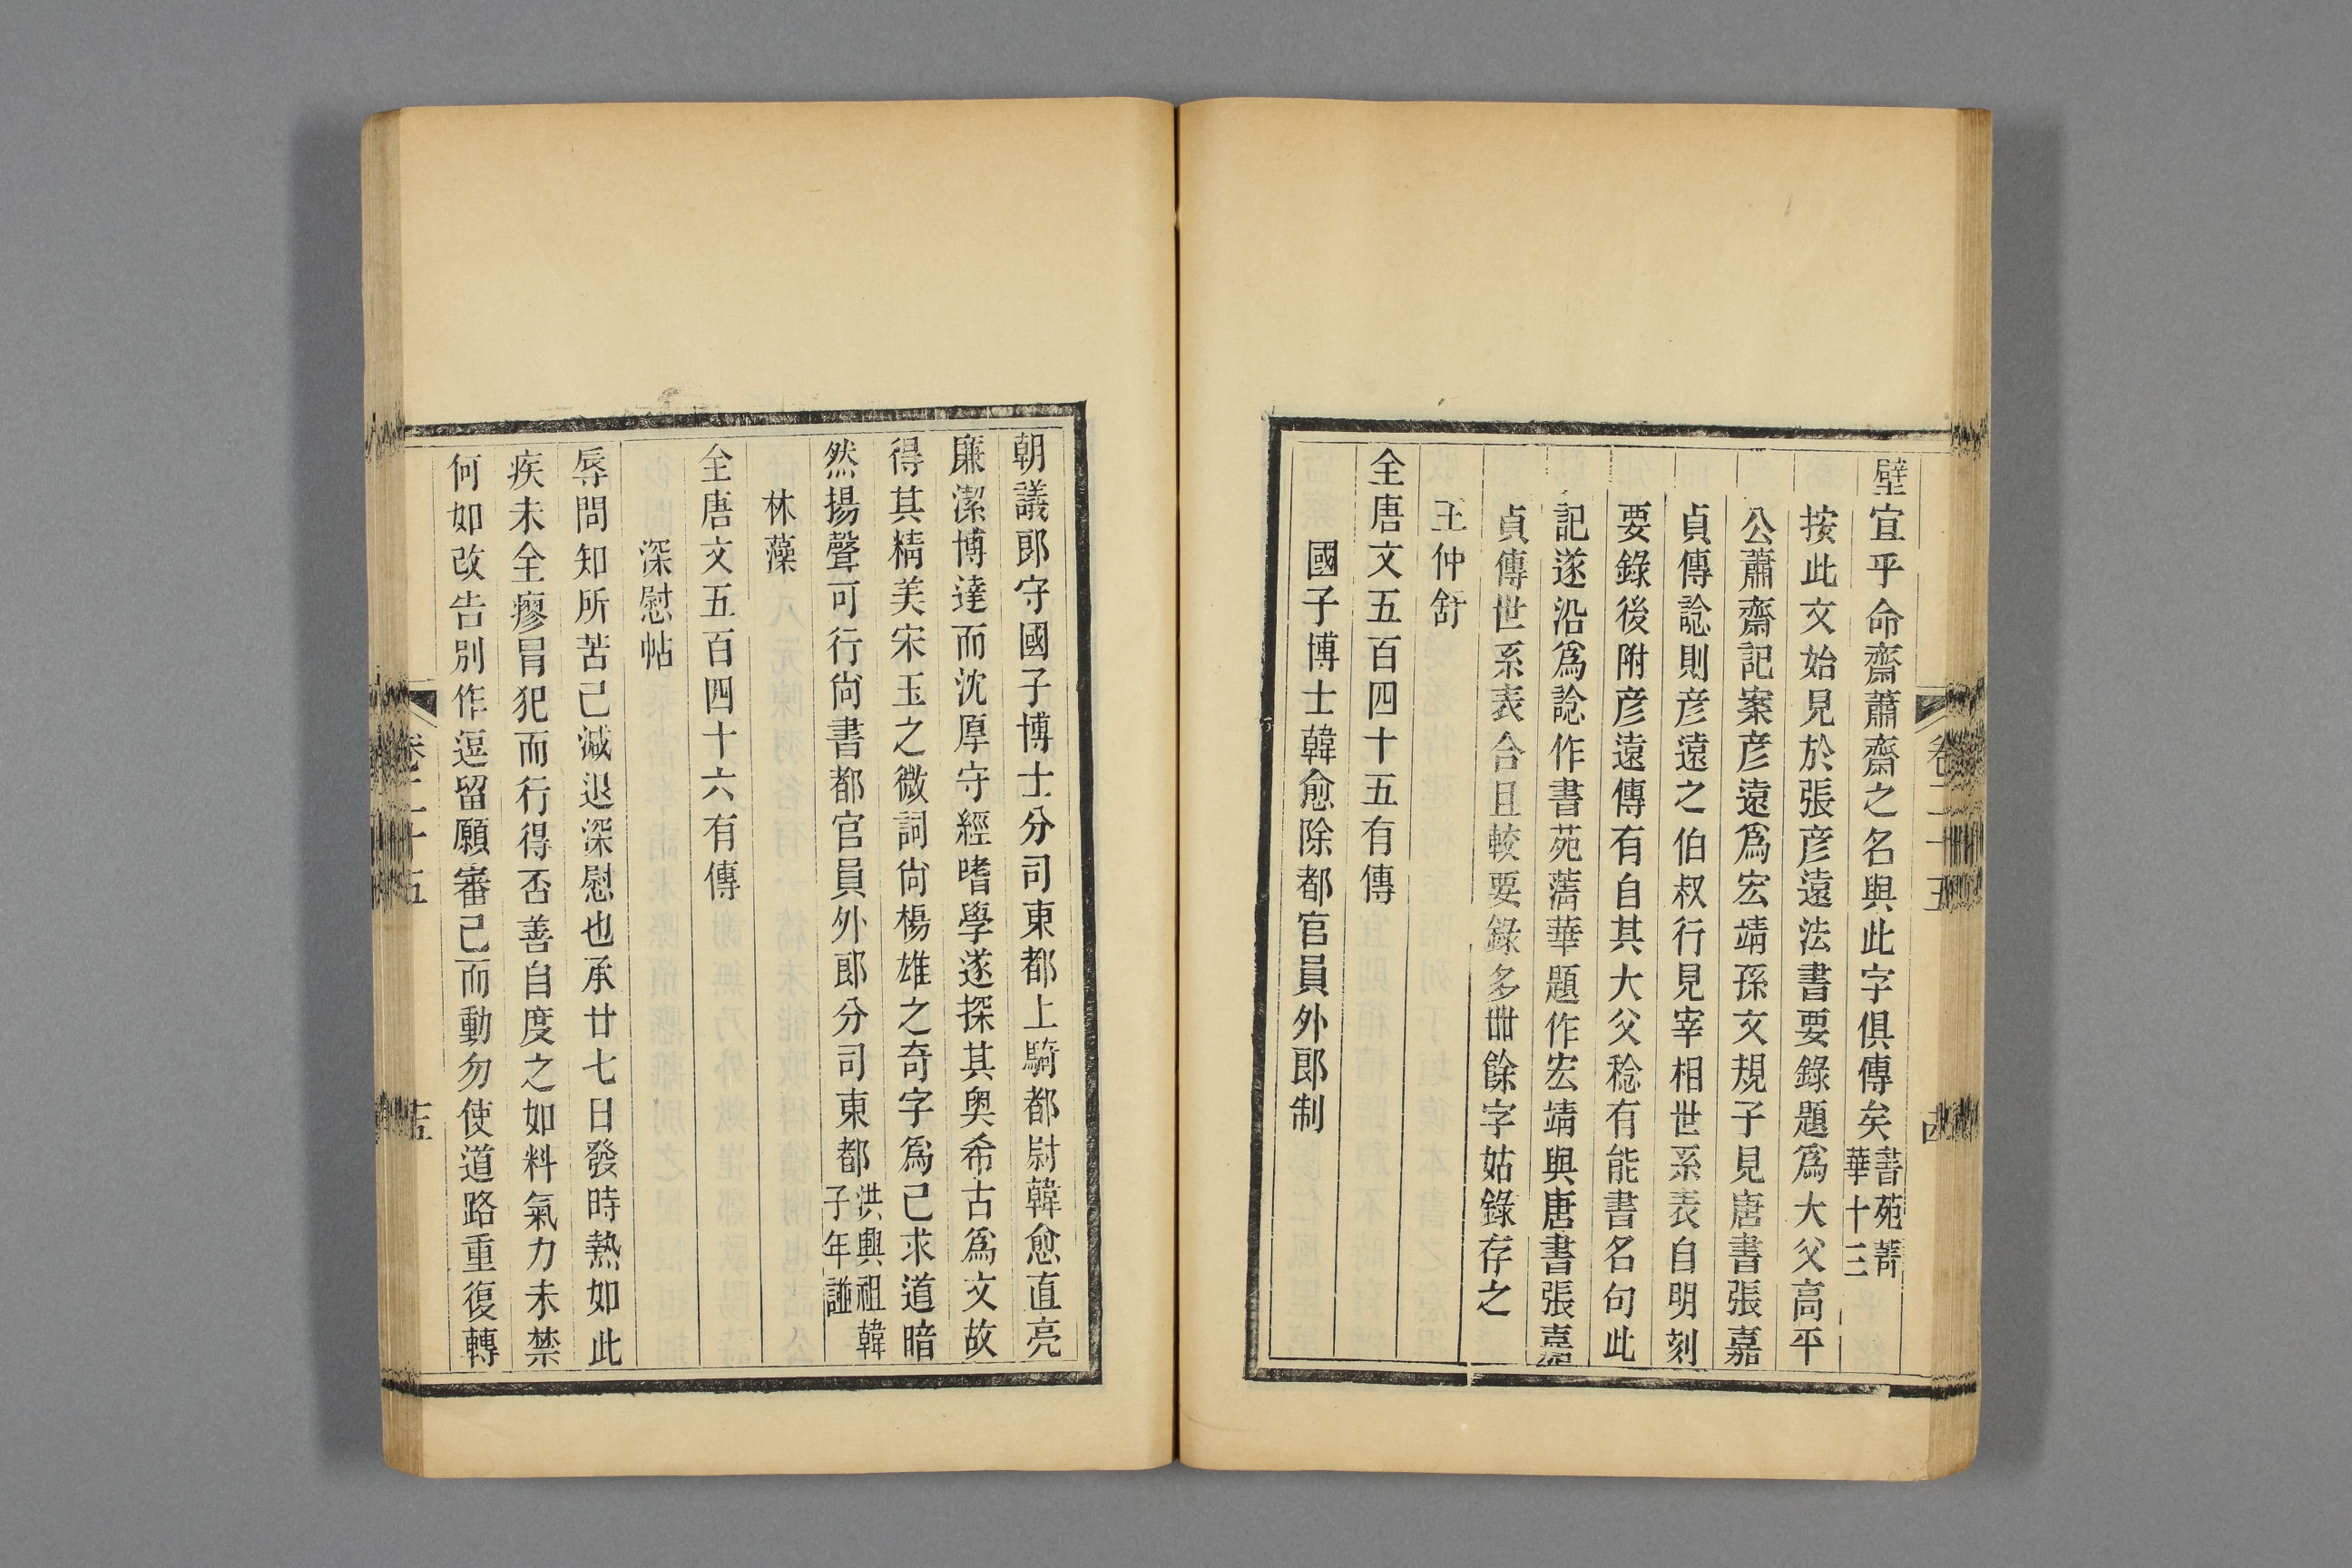 壁宜乎命齋蕭齋之名與此字俱傳矣書苑菁華十三
按此文始見於張彦遠法書要錄題爲大父高平
公蕭齋記案彦遠爲宏靖孫文規子見唐書張嘉
貞傳諗則彦遠之伯叔行見宰相世系表自明刻
要錄後附彦遠傳有自其大父稔有能書名句此
記遂沿爲諗作書苑菁華題作宏靖與唐書張嘉
貞傳世系表合且較要錄多卌餘字姑錄存之
王仲舒
全唐文五百四十五有傳
國子博士韓愈除都官員外郎制
卷二十五
朝議郎守國子博士分司東都上騎都尉韓愈直亮
廉潔博達而沈厚守經嗜學遂探其奧希古爲文故
得其精美宋玉之微詞尙楊雄之奇字爲己求道暗
然揚聲可行尙書都官員外郎分司東都洪興祖韓子年譜
林藻
全唐文五百四十六有傳
深慰帖
辱問知所苦己減退深慰也承廿七日發時熱如此
疾未全瘳冐犯而行得否善自度之如料氣力未禁
何如改告別作逗留願審己而動勿使道路重復轉
卷二十五